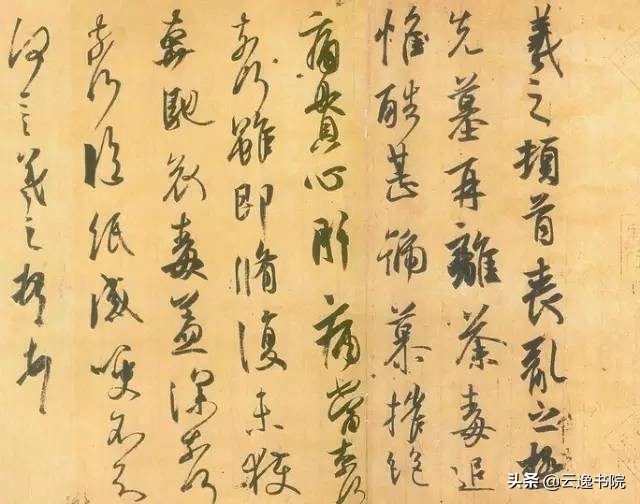 羲之頓首喪亂之極
先墓再離荼毒追
惟酷甚號慕摧絕
痛貫心肝痛當奈何
奈何雖即脩復未獲
奔馳哀毒益深奈何
奈何臨紙感哽不知
何言羲之頓首頓首
头条 @云逸书院